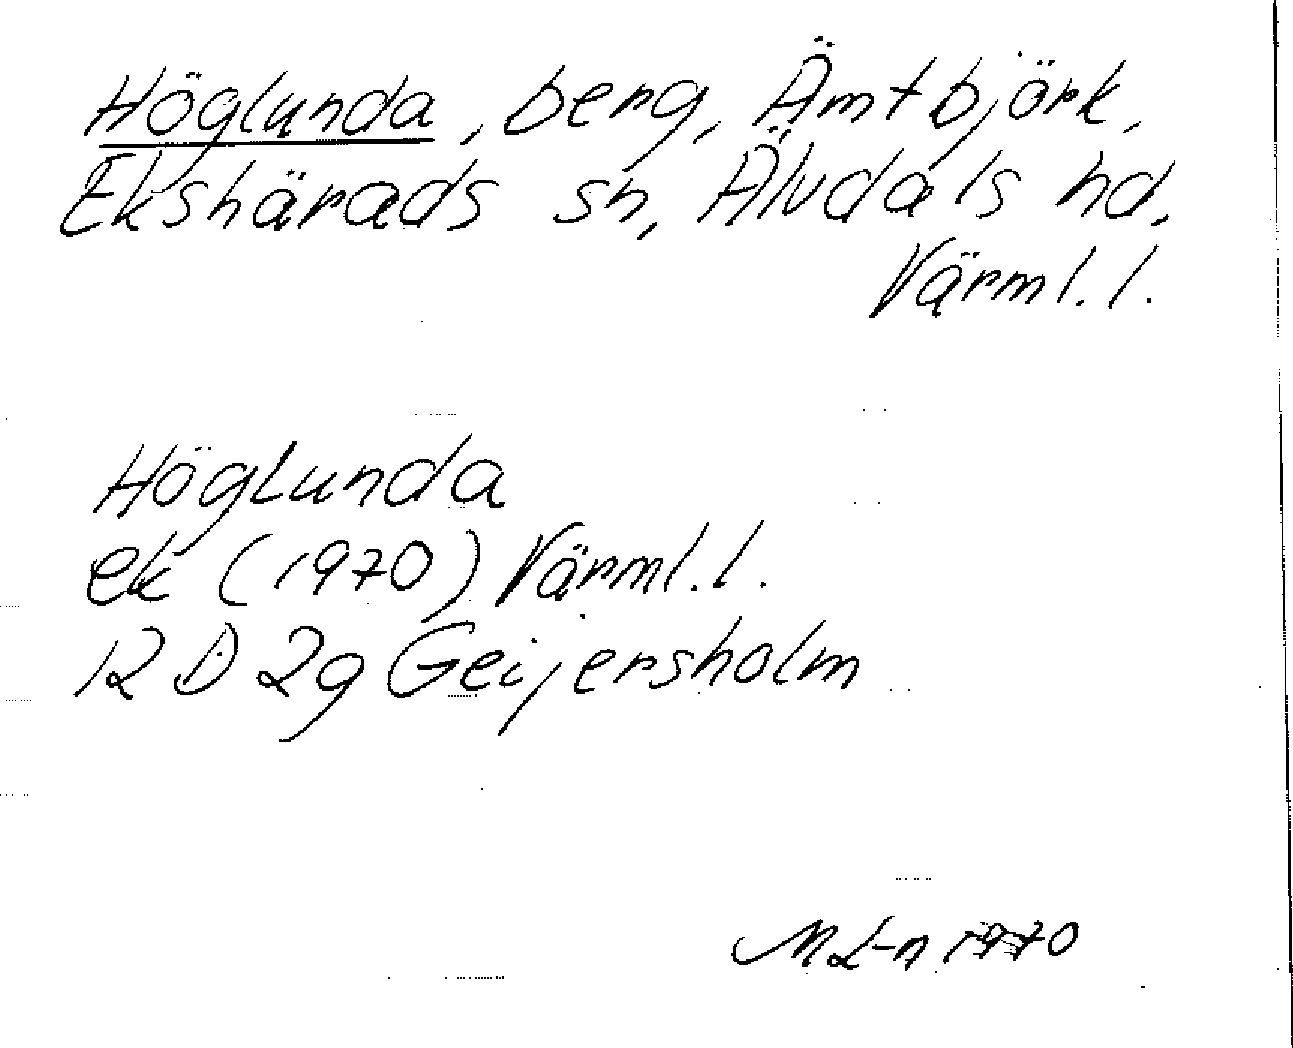 Höglunda, berg, Ämtbjörk,
Ekshärads sn, Älvdals hd,
Värml. l.
Höglunda
ek (1970) Värml. l.
12 D 2g Geijersholm
M L-n 1970